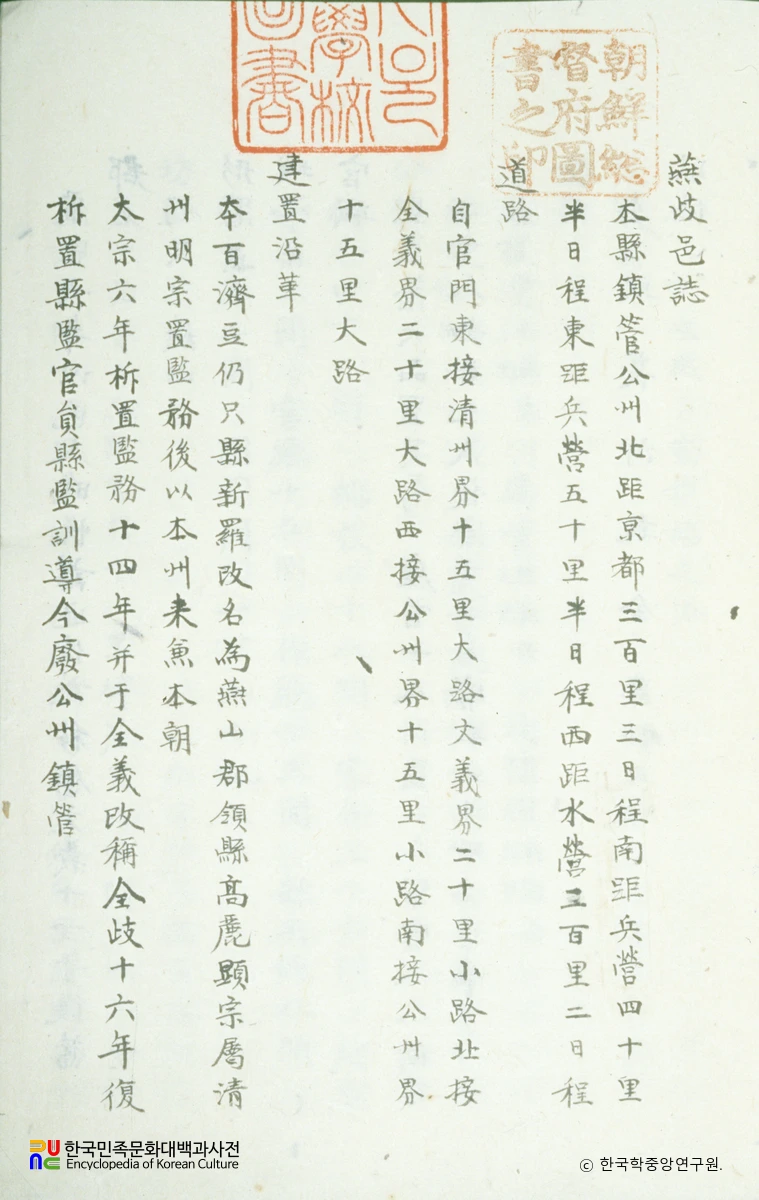 燕歧邑誌
本縣鎮管公州北距京都三百里三日程南距兵營四十里
半日程東距兵營五十里半日程西距水營三百里二日程
道路
自官門東接清州界十五里大路文義界二十里小路北接
全義界二十里大路西接公州界十五里小路南接公州界
十五里大路
建置沿革
本百濟豆仍只縣新羅改名為燕山郡領縣高麗顯宗屬清
州明宗置監務後以木州来兼本朝
太宗六年析置監務十四年并于全義改稱全歧十六年復
析置縣監官貟縣監訓導今廢公州鎮管
朝鮮総
督府圖
書之印
學校
圖書
한국민족문화대백과사전
Encyclopedia of Korean Culture
© 한국학중앙연구원.